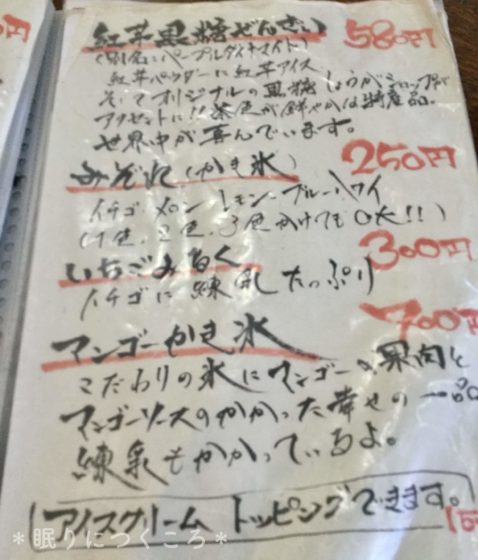 紅芋黒糖ぜんざい 580円
(別名いパープルダイナマイト)
紅芋パウダーに紅芋アイス
そしてオリジナルの黒糖しょうがシロップが
アクセントに!!茶色が鮮やかな特産品。
世界中が喜んでいます。
みぞれ(かき氷) 250円
イチゴ.メロン.レモン.ブルーハワイ
(1色、2色、3色かけてもOK!!)
いちごみるく 300円
イチゴに練乳たっぷり
マンゴーかき氷 700円
こだわりの氷にマンゴーの果肉と
マンゴーソースのかかった幸せの一品
練乳もかかっているよ。
アイスクリーム トッピングできます。
*眠りにつくころ*